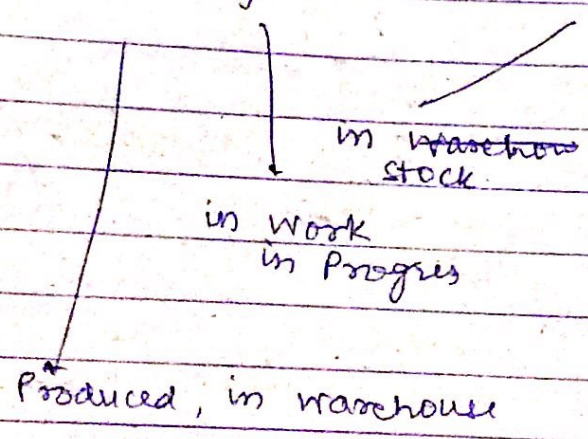 in
stock
in work
in Progres
Produced, in warehouse